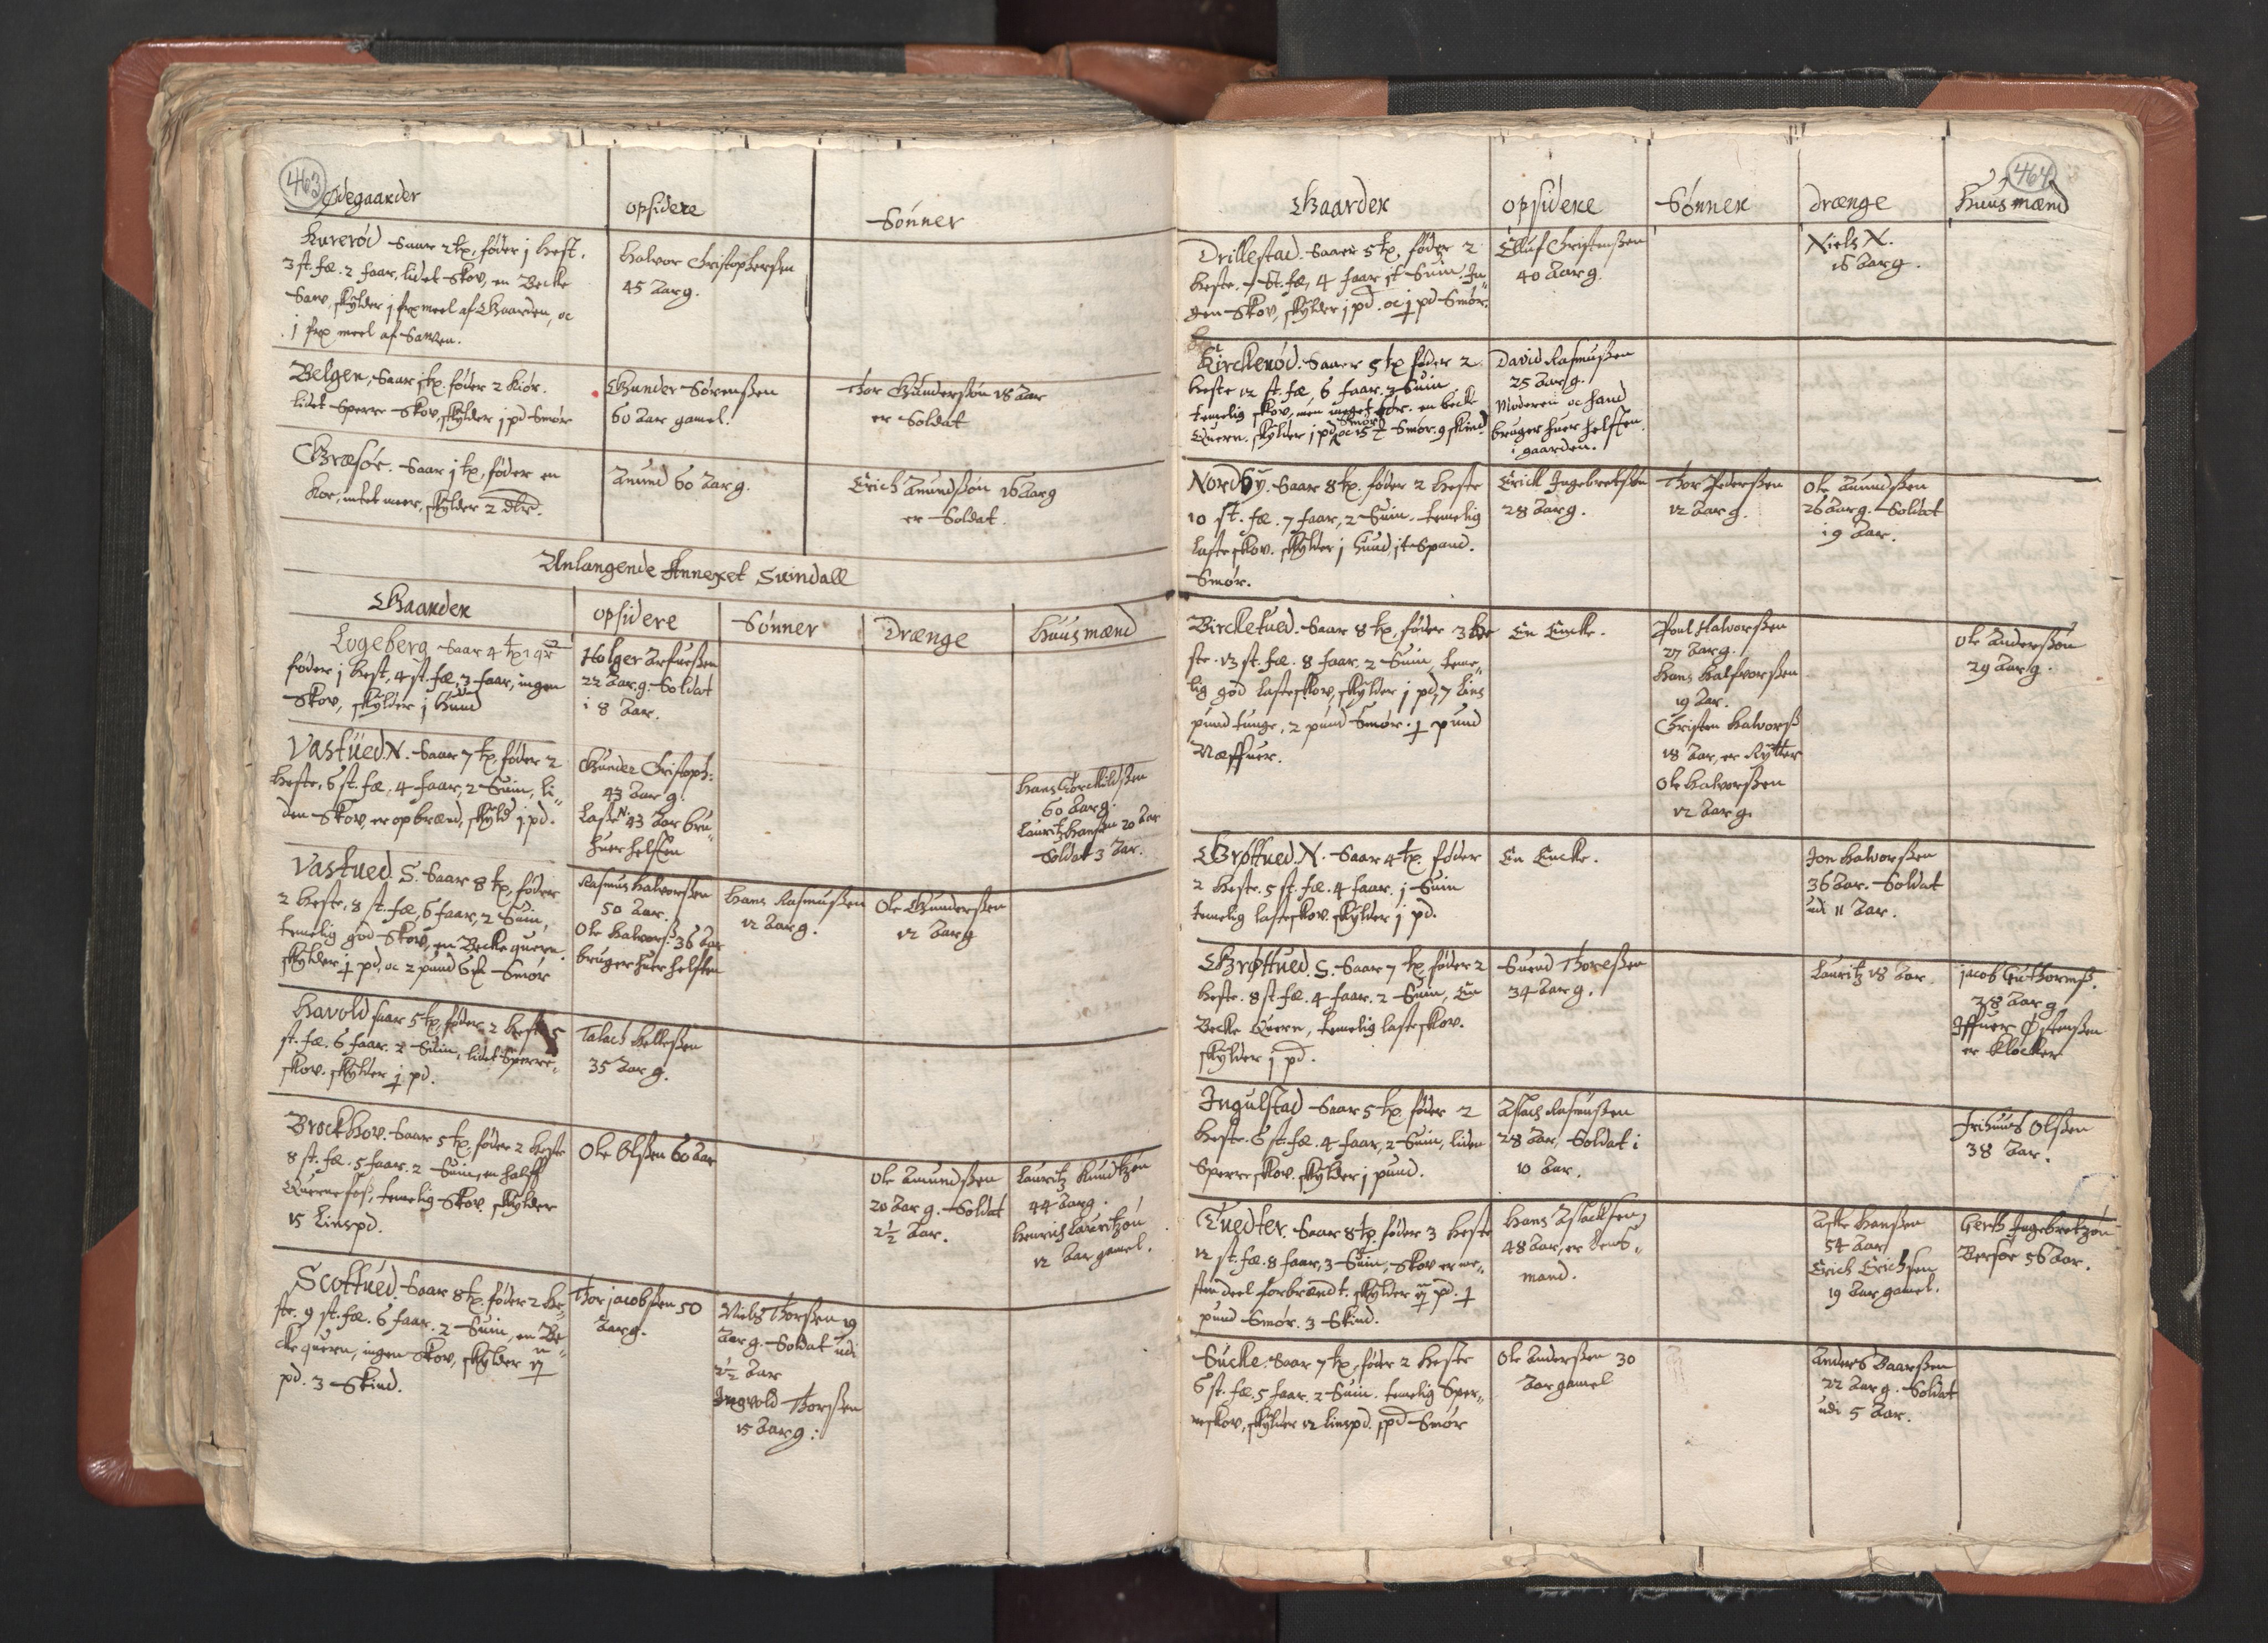 463
Ødegaarder
opsidere
Sønner
Kurerød Saar 2 tp, føder j hest,
3 st. fæ. 2 faar, lidet Skov, en Becke
Saw, skylder j frp meel af Gaarden, oc
j frp meel af Sawen.
Halvor Christophersen
45 Aar g.
Belgen, Saar j tp. føder 2 kiør.
lidet Sperre Skov, skylder j pd Smør
Gunder Sørenßen
60 Aar gamel.
Thor Gunderßøn 18 Aar
er Soldat
Græsør. Saar j tp, føder en
koe, intet meer, skylder 2 dlr.
Amund 60 Aar g.
Erich Amundßøn 16 Aar g
er Soldat.
Anlangende Annexet Svindall
Gaarder
opsidere
Sønner
Drænge
Huusmænd
Logeberg Saar 4 tp
føder j hest, 4 st. fæ, 3 faar, ingen
Skov, skylder j Huud
Holger Arfueßen
22 Aar g. Soldat
i 8 Aar.
Vastued N. Saar 7 tp, føder 2
heste, 6 st. fæ, 4 faar, 2 Suin, li-
den Skov, er opbrænd, skyld j pd.
Gunder Christoph:
43 Aar g.
Laße N. 43 Aar bru-
huer helften
Hans Torckildßen
60 Aar g.
Lauritz Hanßen 20 Aar
Soldat 3 Aar.
Vastued. S. Saar 8 tp, føder
2 heste, 8 st. fæ, 6 faar, 2 Suin,
temelig god Skov, en Becke quern.
skylder j pd, oc 2 pund Smør
Rasmus Halvorßen
50 Aar.
Ole Halvorß: 36 Aar
bruger huer helften
Hans Rasmußen
12 Aar g.
Ole Gunderßen
12 Aar g
Havold saar 5 tp, føder 2 heste 5
st. fæ. 6 faar. 2 Suin, lidet Sperre-
skov. skylder j pd.
Talach Helleßen
35 Aar g.
Brockhov. Saar 5 tp, føder 2 heste
8 st. fæ. 5 faar. 2 Suin, en halff
Quernefoß, temelig Skov. skylder
15 Linspd.
Ole Olßen 60 Aar
Ole Amundßen
20 Aar g. Soldat
2½ Aar.
Lauritz Knudtzøn
44 Aar g.
Henrich Lauritzøn
12 Aar gamel.
Scottued. Saar 8 tp, føder 2 he-
ste. 9 st. fæ. 6 faar. 2 Suin, en Be-
cke quern, ingen Skov, skylder
pd. 3 Skind.
Thor Jacobßen 50
Aar g.
Niels Thorßen 19
Aar g. Soldat udi
2½ Aar
Ingvold Thorßen
15 Aar g:
464
Gaarder
opsidere
Sønner
Drænge
Huusmænd
Drillestad. Saaer 5 tp, føder 2
heste. 7 st. fæ, 4 faar jt Suin. In-
gen Skov, skylder j pd. oc j pd Smør.
Elluf Christenßen
40 Aar g.
Niels N.
16 Aar g.
Kirckerød. Saaer 5 tp føder 2
heste 12 st. fæ, 6 faar. 2 Suin
temelig skov, men meget tør. en becke
Quern. skylder j pd, Smør oc 15 Smør. 9 skind
David Rasmußen
25 Aar g.
Moderen oc hand
bruger huer helften
i gaarden.
Nordby. Saar 8 tp. føder 2 heste
10 st. fæ. 7 faar, 2 Suin. temelig
lasteskov. skylder j huud, jt Spand.
Smør.
Erick Ingebretßen
28 Aar g.
Thor Pederßen
12 Aar g.
Ole Amundßen
26 Aar g. Soldat
i 9 Aar.
Bircketued. Saar 8 tp, føder 3 he
ste. 13 st. fæ. 8 faar. 2 Suin, teme-
lig god lasteskov, skylder j pd, 7 Lins
pund tunge, 2 pund Smør. j pund
Næffuer.
En Encke.
Poul Halvorßen
27 Aar g.
Hans Halfvorßen
19 Aar.
Christen Halvorß
18 Aar, er Rytter
Ole Halvorßen
12 Aar g.
Ole Anderßøn
29 Aar g.
Grøttued. N. Saar 4 tp. føder
2 heste. 5 st. fæ. 4 faar. j Suin
temelig lasteskov. skylder j pd.
En Encke.
Jon Halvorßen
36 Aar. Soldat
udi 11 Aar.
Grøttued. S. Saar 7 tp føder 2
heste. 8 st. fæ. 4 faar. 2 Suin, En
Becke Quern, temelig lasteskov.
skylder j pd.
Suend Thoreßen
34 Aar g.
Lauritz 18 Aar.
Jacob Guthormß.
38 Aar g
Iffuer Østenßen
er Klocker
Ingulstad Saar 5 tp. føder 2
heste. 6 st. fæ. 4 faar, 2 Suin, liden
Sperreskov. skylder j pund.
Aslach Rasmußen
28 Aar, Soldat i
10 Aar.
Olßen
38 Aar.
Tuedter. Saar 8 tp. føder 3 heste
12 st. fæ. 8 faar, 3 Suin, Skov er me-
sten deel forbrændt. skylder pd. j
pund Smør. 3 Skind.
Hans Aslacksen,
48 Aar, er Lens-
mand.
Aste Hanßen
54 Aar
Erich Erichsen
19 Aar gamel.
Gerth Ingebretzøn
Berføe 56 Aar.
Sucke. Saar 7 tp, føder 2 heste
6 st. fæ. 5 faar. 2 Suin. temelig Sper-
reskov, skylder 12 linspd. j pd Smør
Ole Anderßen 30
Aar gamel
Anders Baarßen
22 Aar g. Soldat
udi 5 Aar.